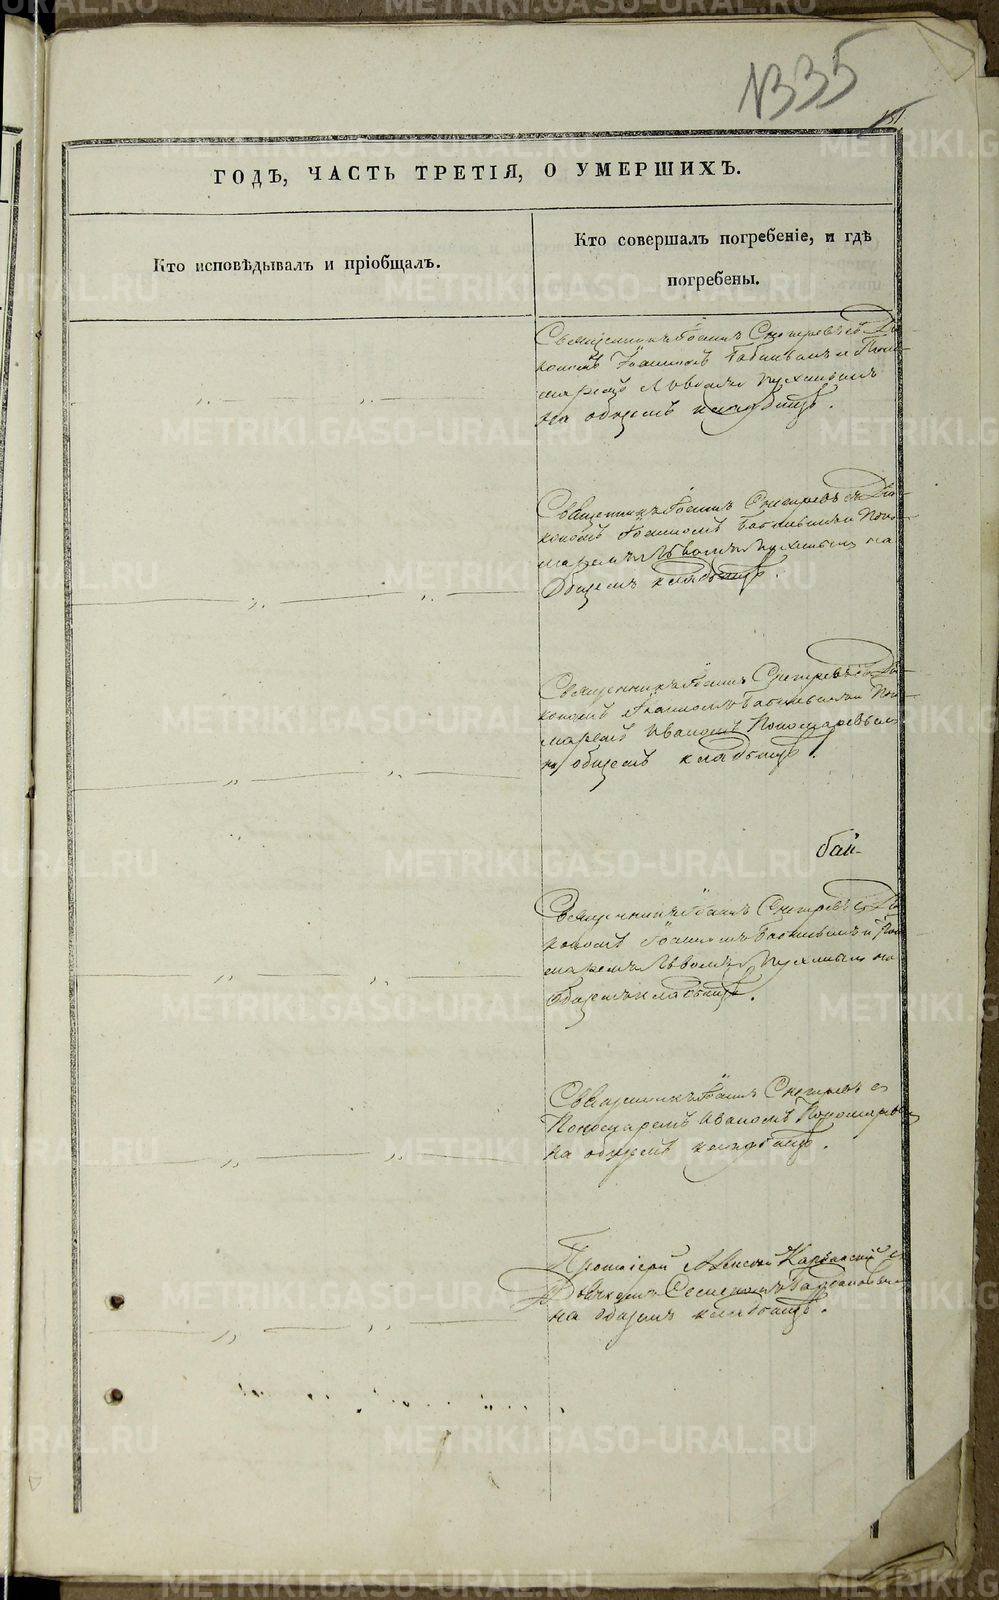 №335
151
ГОДЪ, ЧАСТЬ ТРЕТІЯ, О УМЕРШИХЪ.
Кто исповѣдывалъ и пріобщалъ.
Кто совершалъ погребеніе, и гдѣ
погребены.
Священникъ Іоаннъ Снегиревъ съ Діа-
кономъ Іоанномъ и Поно-
маремъ Львомъ
на общемъ кладбищѣ.
Священникъ Іоаннъ Снегиревъ съ Діа-
кономъ Іоанномъ и Поно-
маремъ Львомъ на
общемъ кладбищѣ.
Священникъ Іоаннъ Снегиревъ съ Діа-
кономъ Іоанномъ и Поно-
маремъ Иваномъ Пономаревымъ
на общемъ кладбищѣ.
бай-
Священникъ Іоаннъ Снегиревъ съ Діа-
кономъ Іоанномъ и Поно-
маремъ Львомъ на
общемъ кладбищѣ.
Священникъ Іоаннъ Снегиревъ съ
Пономаремъ Иваномъ Пономаревым
на общемъ кладбищѣ.
Протоіерей Алексей съ
Дьячкомъ
на общемъ кладбищѣ.
METRIKI.GASO-URAL.RU